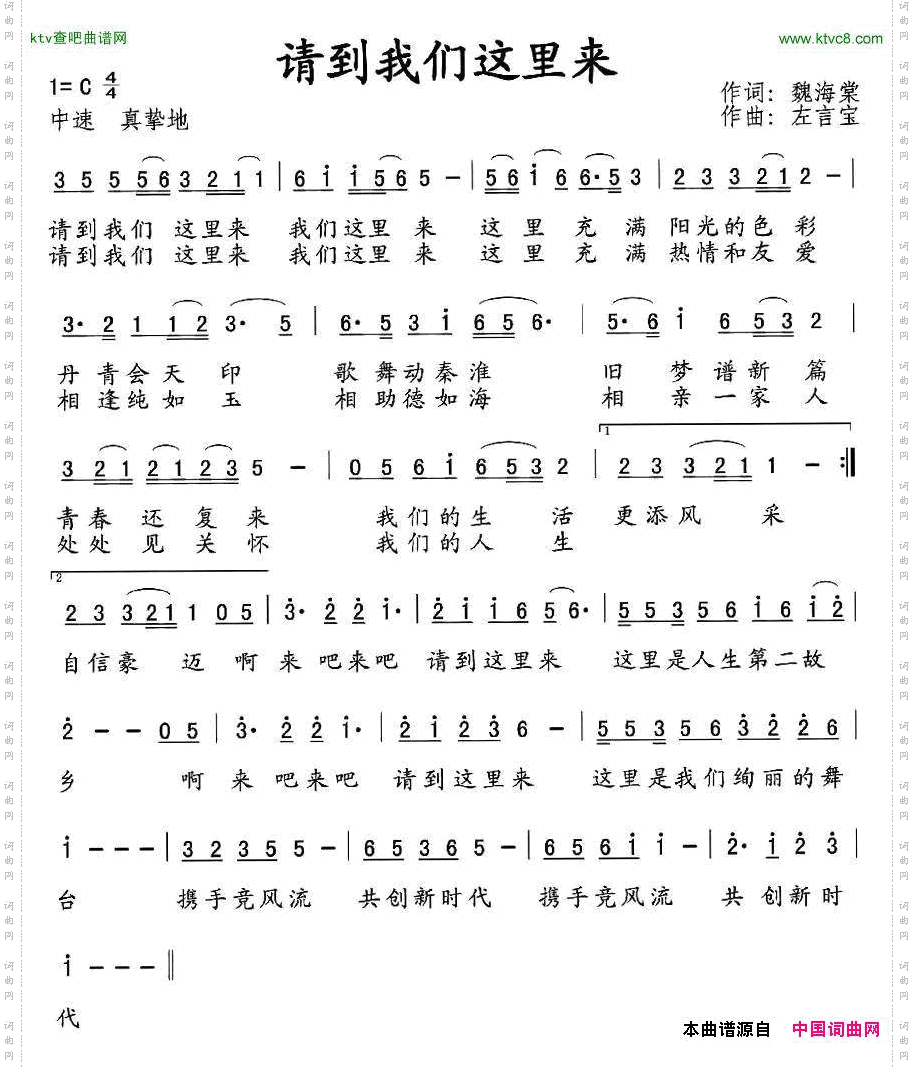 ktv查吧曲谱网
www.ktvc8.com
请到我们这里来
1=C 4/4
作词：魏海棠
中速 真挚地
作曲：左言宝
3 5 5 56 3 21 1 | 6 i i56 5 - | 56 i6 6·5 3 | 2 3 3 21 2 - |
请到我们 这里来 我们这里 来 这 里 充 满 阳光的色 彩
请到我们 这里来 我们这里 来 这 里 充 满 热情和友 爱
3· 2 1 12 3· 5 | 6· 5 3 i 65 6· | 5· 6 i 6 53 2 |
丹 青会天 印 歌 舞动秦淮 旧 梦 谱新 篇
相 逢纯如 玉 相 助德如海 相 亲 一家 人
1
3 21 21 23 5 - | 0 5 6 i 6 53 2 | 2 3 3 21 1 - :||
青春 还 复 来 我们的生 活 更添风 采
处处 见 关 怀 我们的人 生
2
2 3 3 21 1 0 5 | 3· 2 2 i· | 2 i i 6 5 6· | 5 5 3 5 6 i 6 i 2 |
自信豪 迈 啊 来 吧来吧 请到这里来 这里是人生第二故
2 - - 0 5 | 3· 2 2 i· | 2 i 2 3 6 - | 5 5 3 5 6 3 2 2 6 |
乡 啊 来 吧来吧 请到这里来 这里是我们绚丽的舞
i - - - | 3 2 3 5 5 - | 6 5 3 6 5 - | 6 5 6 i i - | 2· i 2 3 |
台 携手竞风流 共创新时代 携手竞风流 共 创新时
i - - - ||
代
本曲谱源自 中国词曲网
词曲网